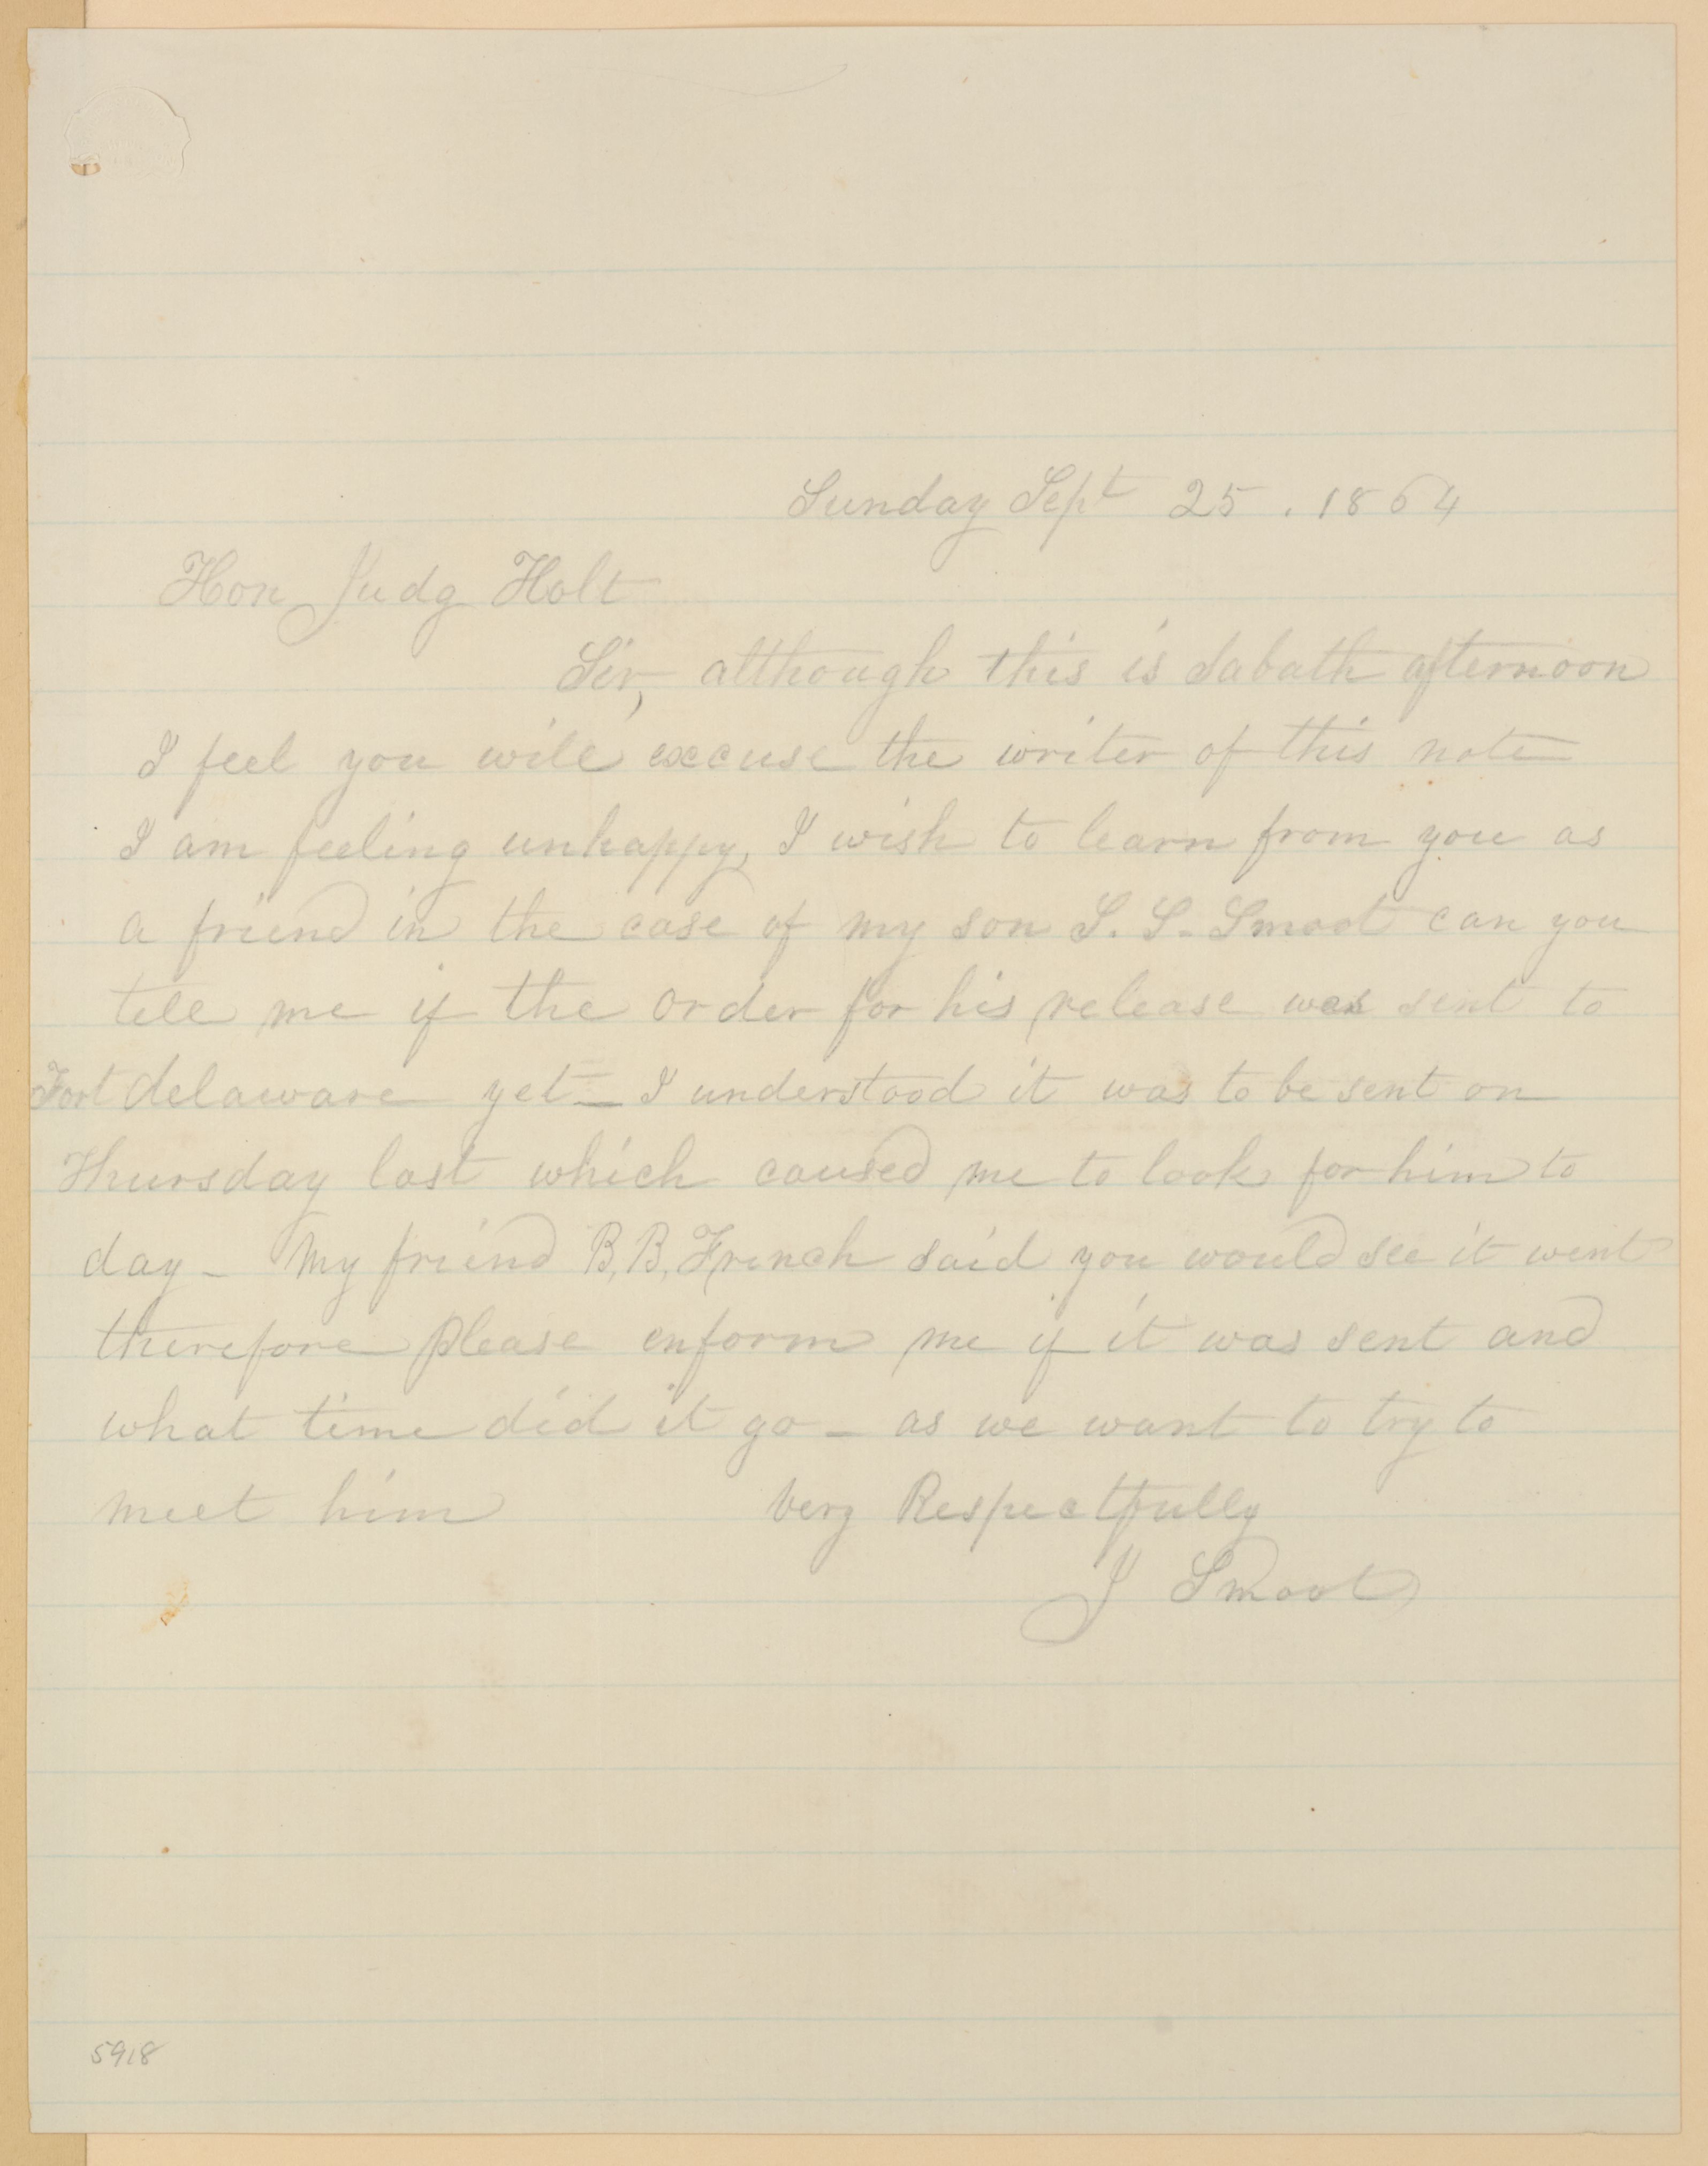 Sunday Sept 25. 1864
Hon Judg Holt
Sir, although this is Sabath afternoon
I feel you will excuse the writer of this note
I am feeling unhappy, I wish to learn from you as
a friend in the case of my son S. S. Smoot can you
tell me if the order for his release was sent to
Fort delaware yet - I understood it was to be sent on
Thursday last which caused me to look for him to
day - My friend B, B, French said you would see it went
therefore please enform me if it was sent and
what time did it go - as we want to try to
meet him very Respectfully
J Smoot
5918